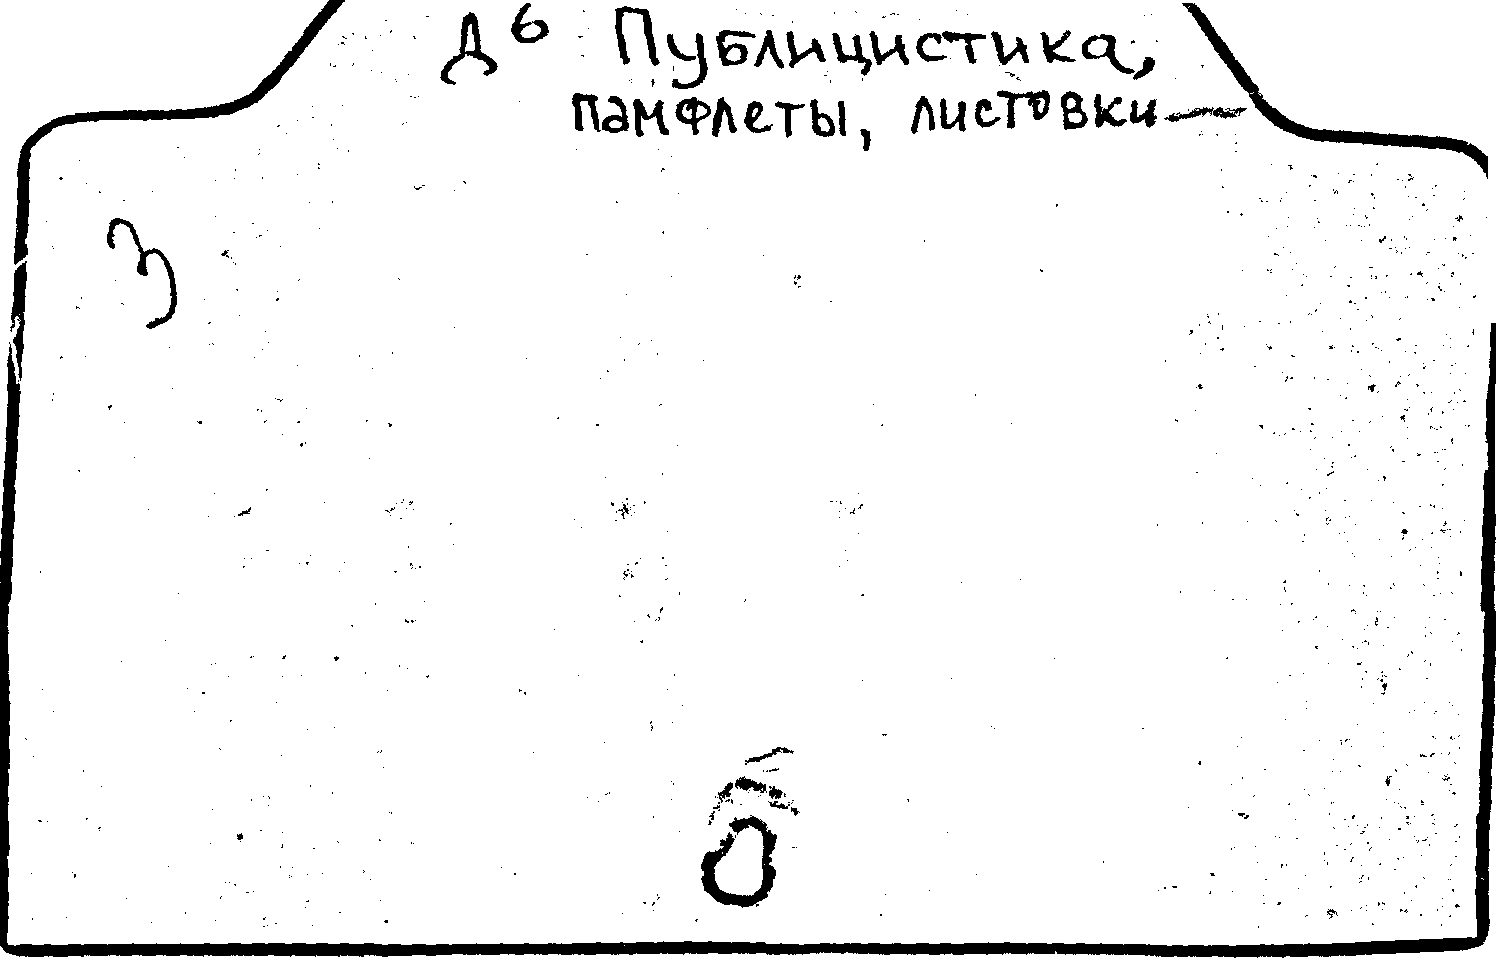 Д6 Публицистика,
памфлеты, листовки —
3